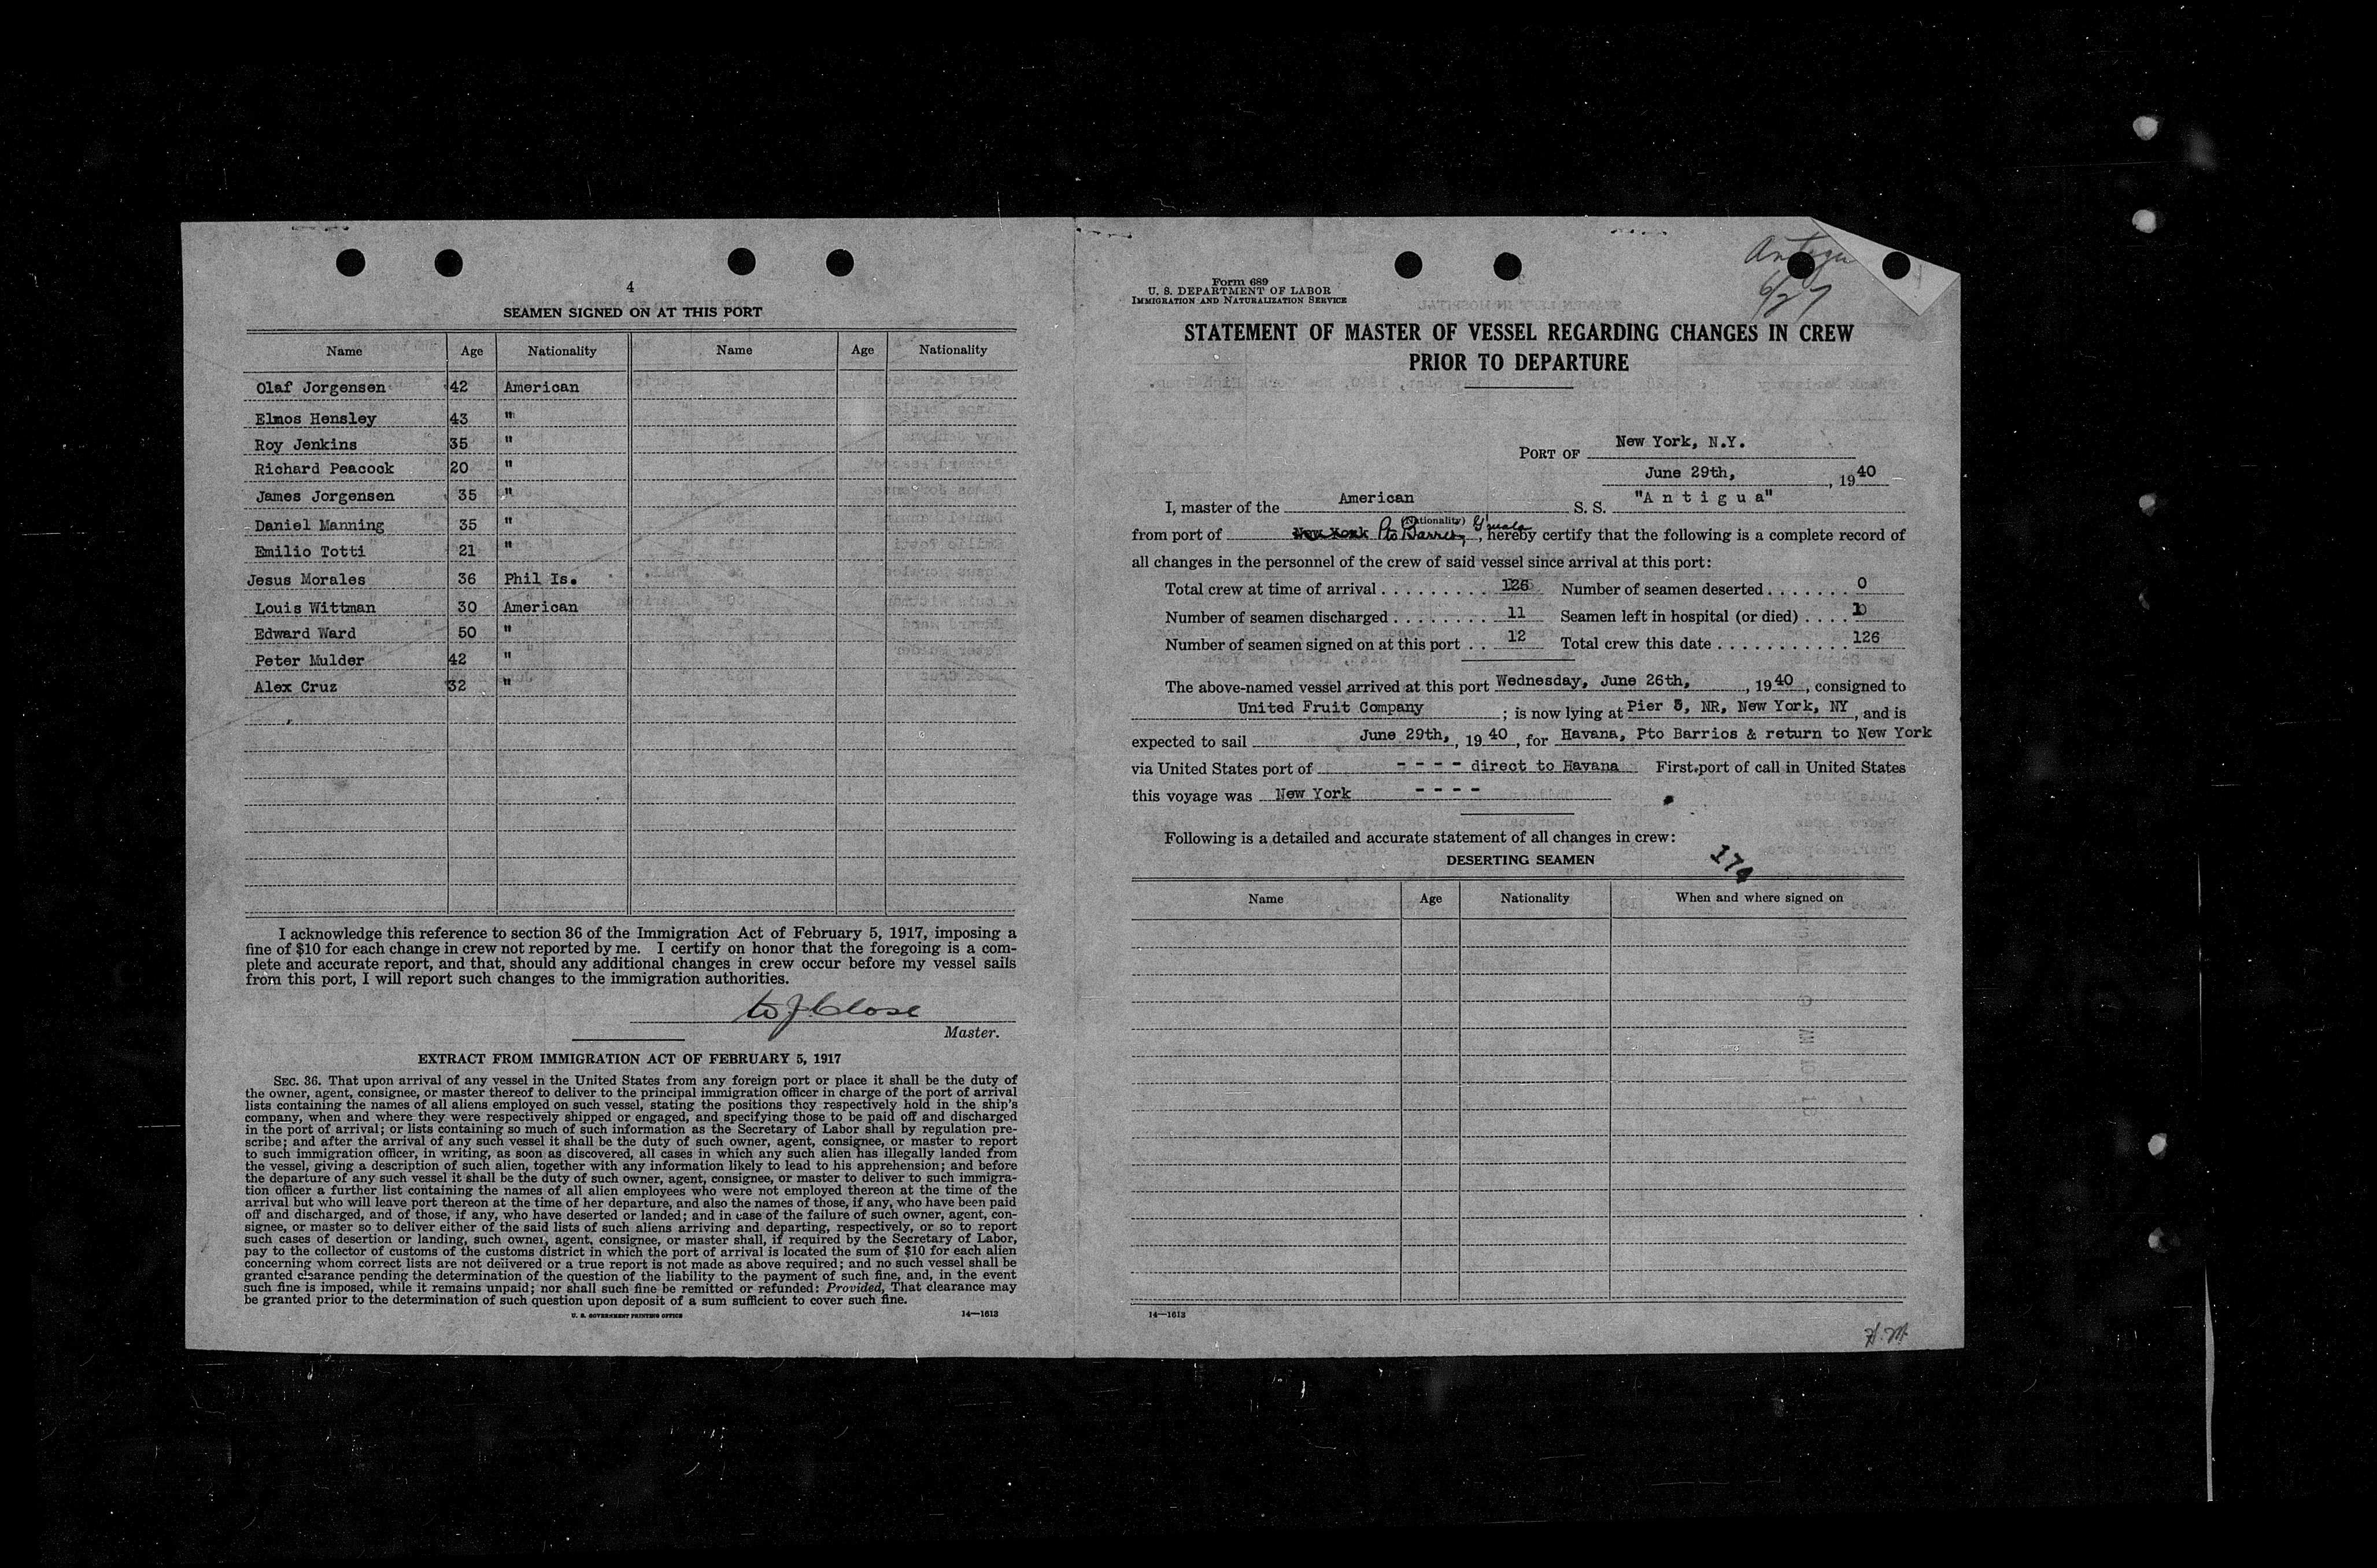 4
SEAMEN SIGNED ON AT THIS PORT
Name Age Nationality Name Age Nationality
Olaf Jorgensen 42 American
Elmos Hensley 43 "
Roy Jenkins 35 "
Richard Peacock 20 "
James Jorgensen 35 "
Daniel Manning 35 "
Emilio Totti 21 "
Jesus Morales 36 Phil Is.
Louis Wittman 30 American
Edward Ward 50 "
Peter Mulder 42 "
Alex Cruz 32 "
I acknowledge this reference to section 36 of the Immigration Act of February 5, 1917, imposing a
fine of $10 for each change in crew not reported by me. I certify on honor that the foregoing is a com-
plete and accurate report, and that, should any additional changes in crew occur before my vessel sails
from this port, I will report such changes to the immigration authorities.
W J Close
Master.
EXTRACT FROM IMMIGRATION ACT OF FEBRUARY 5, 1917
SEC. 36. That upon arrival of any vessel in the United States from any foreign port or place it shall be the duty of
the owner, agent, consignee, or master thereof to deliver to the principal immigration officer in charge of the port of arrival
lists containing the names of all aliens employed on such vessel, stating the positions they respectively hold in the ship's
company, when and where they were respectively shipped or engaged, and specifying those to be paid off and discharged
in the port of arrival; or lists containing so much of such information as the Secretary of Labor shall by regulation pre-
scribe; and after the arrival of any such vessel it shall be the duty of such owner, agent, consignee, or master to report
to such immigration officer, in writing, as soon as discovered, all cases in which any such alien has illegally landed from
the vessel, giving a description of such alien, together with any information likely to lead to his apprehension; and before
the departure of any such vessel it shall be the duty of such owner, agent, consignee, or master to deliver to such immigra-
tion officer a further list containing the names of all alien employees who were not employed thereon at the time of the
arrival but who will leave port thereon at the time of her departure, and also the names of those, if any, who have been paid
off and discharged, and of those, if any, who have deserted or landed; and in case of the failure of such owner, agent, con-
signee, or master so to deliver either of the said lists of such aliens arriving and departing, respectively, or so to report
such cases of desertion or landing, such owner, agent, consignee, or master shall, if required by the Secretary of Labor,
pay to the collector of customs of the customs district in which the port of arrival is located the sum of $10 for each alien
concerning whom correct lists are not delivered or a true report is not made as above required; and no such vessel shall be
granted clearance pending the determination of the question of the liability to the payment of such fine, and, in the event
such fine is imposed, while it remains unpaid; nor shall such fine be remitted or refunded: Provided, That clearance may
be granted prior to the determination of such question upon deposit of a sum sufficient to cover such fine.
U. S. GOVERNMENT PRINTING OFFICE 14—1613
Antigua
6/27
Form 689
U. S. DEPARTMENT OF LABOR
IMMIGRATION AND NATURALIZATION SERVICE
STATEMENT OF MASTER OF VESSEL REGARDING CHANGES IN CREW
PRIOR TO DEPARTURE
PORT OF New York, N.Y.
June 29th, , 1940
I, master of the American S. S. "A n t i g u a"
(Nationality)
from port of New York Pto Barrios, G'mala, hereby certify that the following is a complete record of
all changes in the personnel of the crew of said vessel since arrival at this port:
Total crew at time of arrival . . . . . . . . . 126 Number of seamen deserted . . . . . . . 0
Number of seamen discharged . . . . . . . . 11 Seamen left in hospital (or died) . . . . 1
Number of seamen signed on at this port . . 12 Total crew this date . . . . . . . . . . . 126
The above-named vessel arrived at this port Wednesday, June 26th, , 1940, consigned to
United Fruit Company ; is now lying at Pier 5, NR, New York, NY , and is
expected to sail June 29th, , 1940, for Havana, Pto Barrios & return to New York
via United States port of - - - - direct to Havana First port of call in United States
this voyage was New York - - - -
Following is a detailed and accurate statement of all changes in crew:
DESERTING SEAMEN
174
Name Age Nationality When and where signed on
14—1613
H.M.